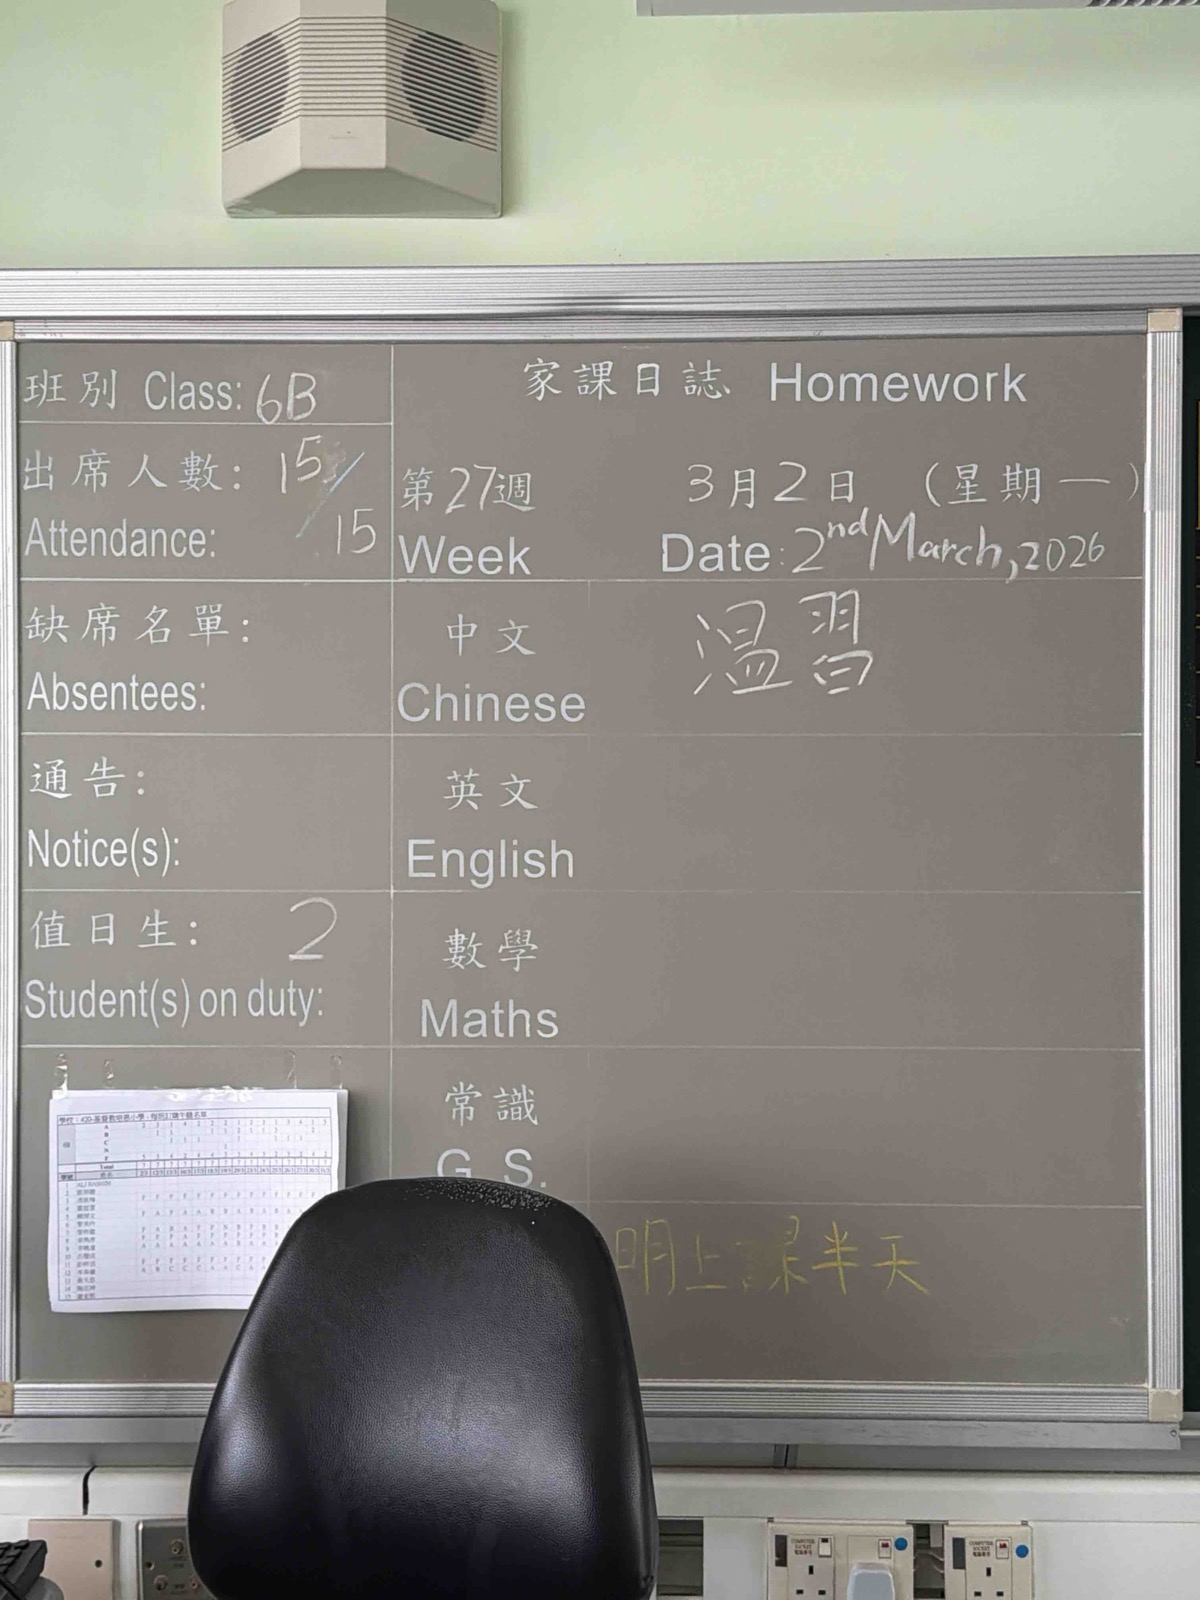 班別 Class: 6B
家課日誌 Homework
出席人數: 15/15
Attendance:
第27週
Week
3月2日 (星期一)
Date: 2nd March, 2026
缺席名單:
Absentees:
中文
Chinese
溫習
通告:
Notice(s):
英文
English
值日生: 2
Student(s) on duty:
數學
Maths
常識
G. S.
明上課半天
Total
COMPUTER SOCKET
電腦專用
COMPUTER SOCKET
電腦專用